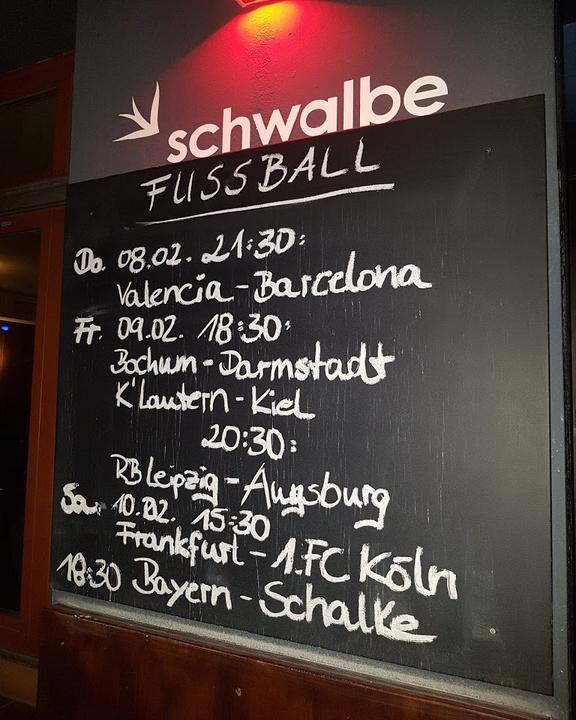 schwalbe
FUSSBALL
Do. 08.02. 21:30:
Valencia - Barcelona
Fr. 09.02. 18:30:
Bochum - Darmstadt
K'Lautern - Kiel
20:30:
RB Leipzig - Augsburg
Sa. 10.02. 15:30
Frankfurt - 1.FC Köln
18:30 Bayern - Schalke